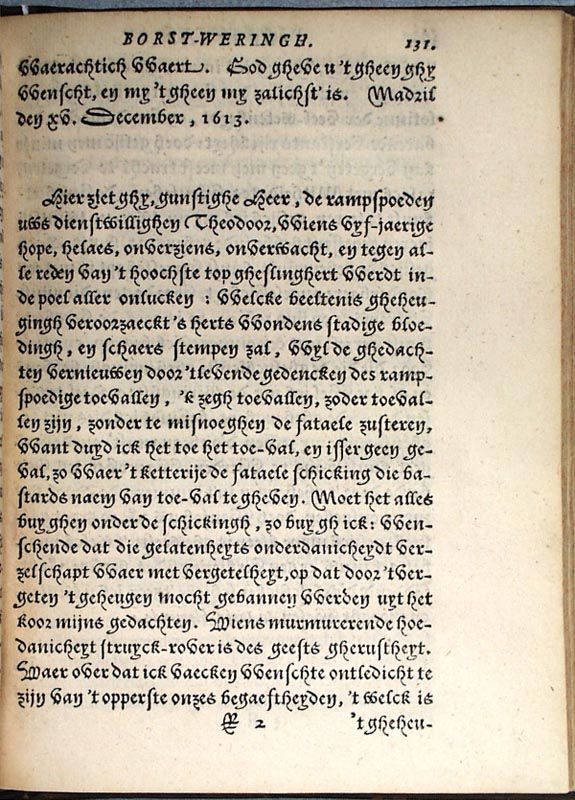 BORST-WERINGH. 131.
VVaerachtich VVaert. God gheve u 't gheen ghy
VVenscht, en my 't gheen my zalichst is. Madril
den xv. December, 1613.
Hier ziet ghy, gunstighe Heer, de rampspoeden
uws dienstwillighen Theodoor, VViens vyf-jaerige
hope, helaes, onverziens, onverwacht, en tegen al-
le reden van 't hoochste top gheslinghert VVerdt in-
de poel aller onlucken : VVelcke beeltenis gheheu-
gingh veroorzaeckt 's herts VVondens stadige bloe-
dingh, en schaers stempen zal, VVyl de ghedach-
ten vernieuwen door 't levende gedencken des ramp-
spoedige toevallen, 'k zegh toevallen, zoder toeval-
len zijn, zonder te misnoeghen de fataele zusteren,
VVant duyd ick het toe het toe-val, en isser geen ge-
val, zo VVaer 't ketterije de fataele schicking die ba-
stards naem van toe-val te gheven. Moet het alles
buyghen onder de schickingh, zo buygh ick: VVen-
schende dat die gelatenheyts onderdanicheydt ver-
zelschapt VVaer met vergetelheyt, op dat door 't ver-
geten 't geheugen mocht gebannen VVerden uyt het
koor mijns gedachten. Wiens murmurerende hoe-
danicheyt struyck-rover is des geests gherustheyt.
Waer over dat ick vaecken VVenschte ontledicht te
zijn van 't opperste onzes begaeftheyden, 't welck is
M 2 't gheheu-